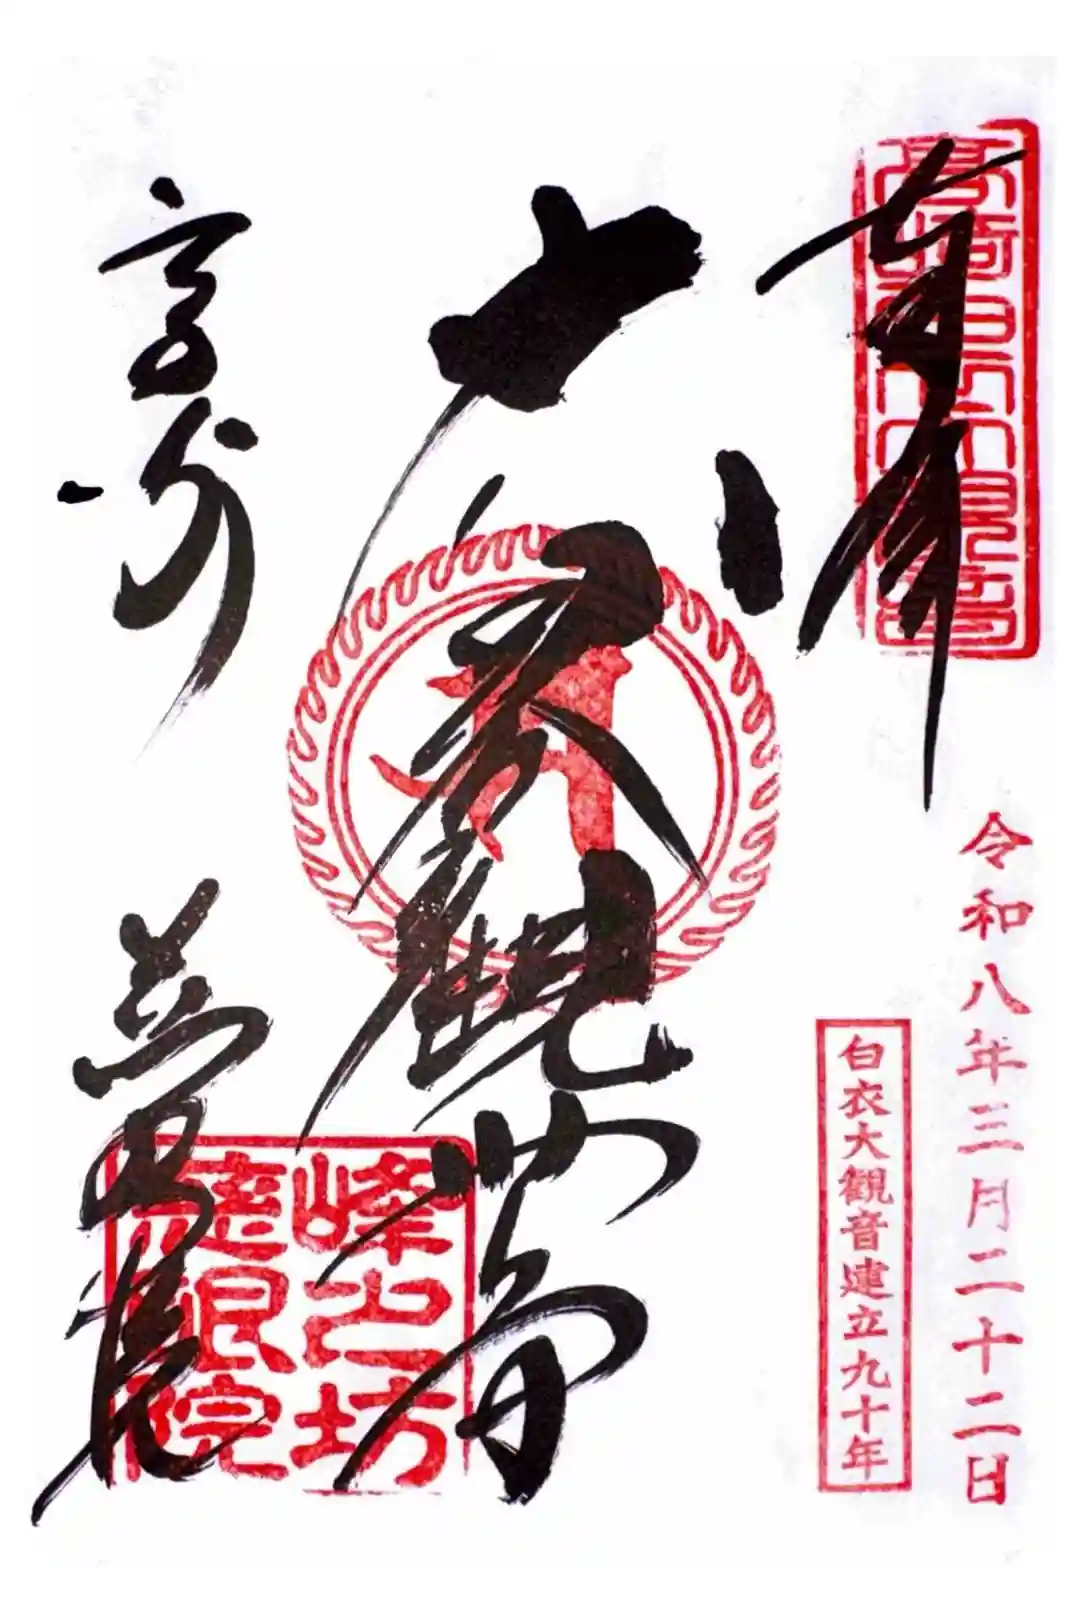 奉拝
高崎白衣大観音
令和八年三月二十二日
白衣大観音建立九十年
白衣観世音
峰之坊
慈眼院
高崎
慈眼院